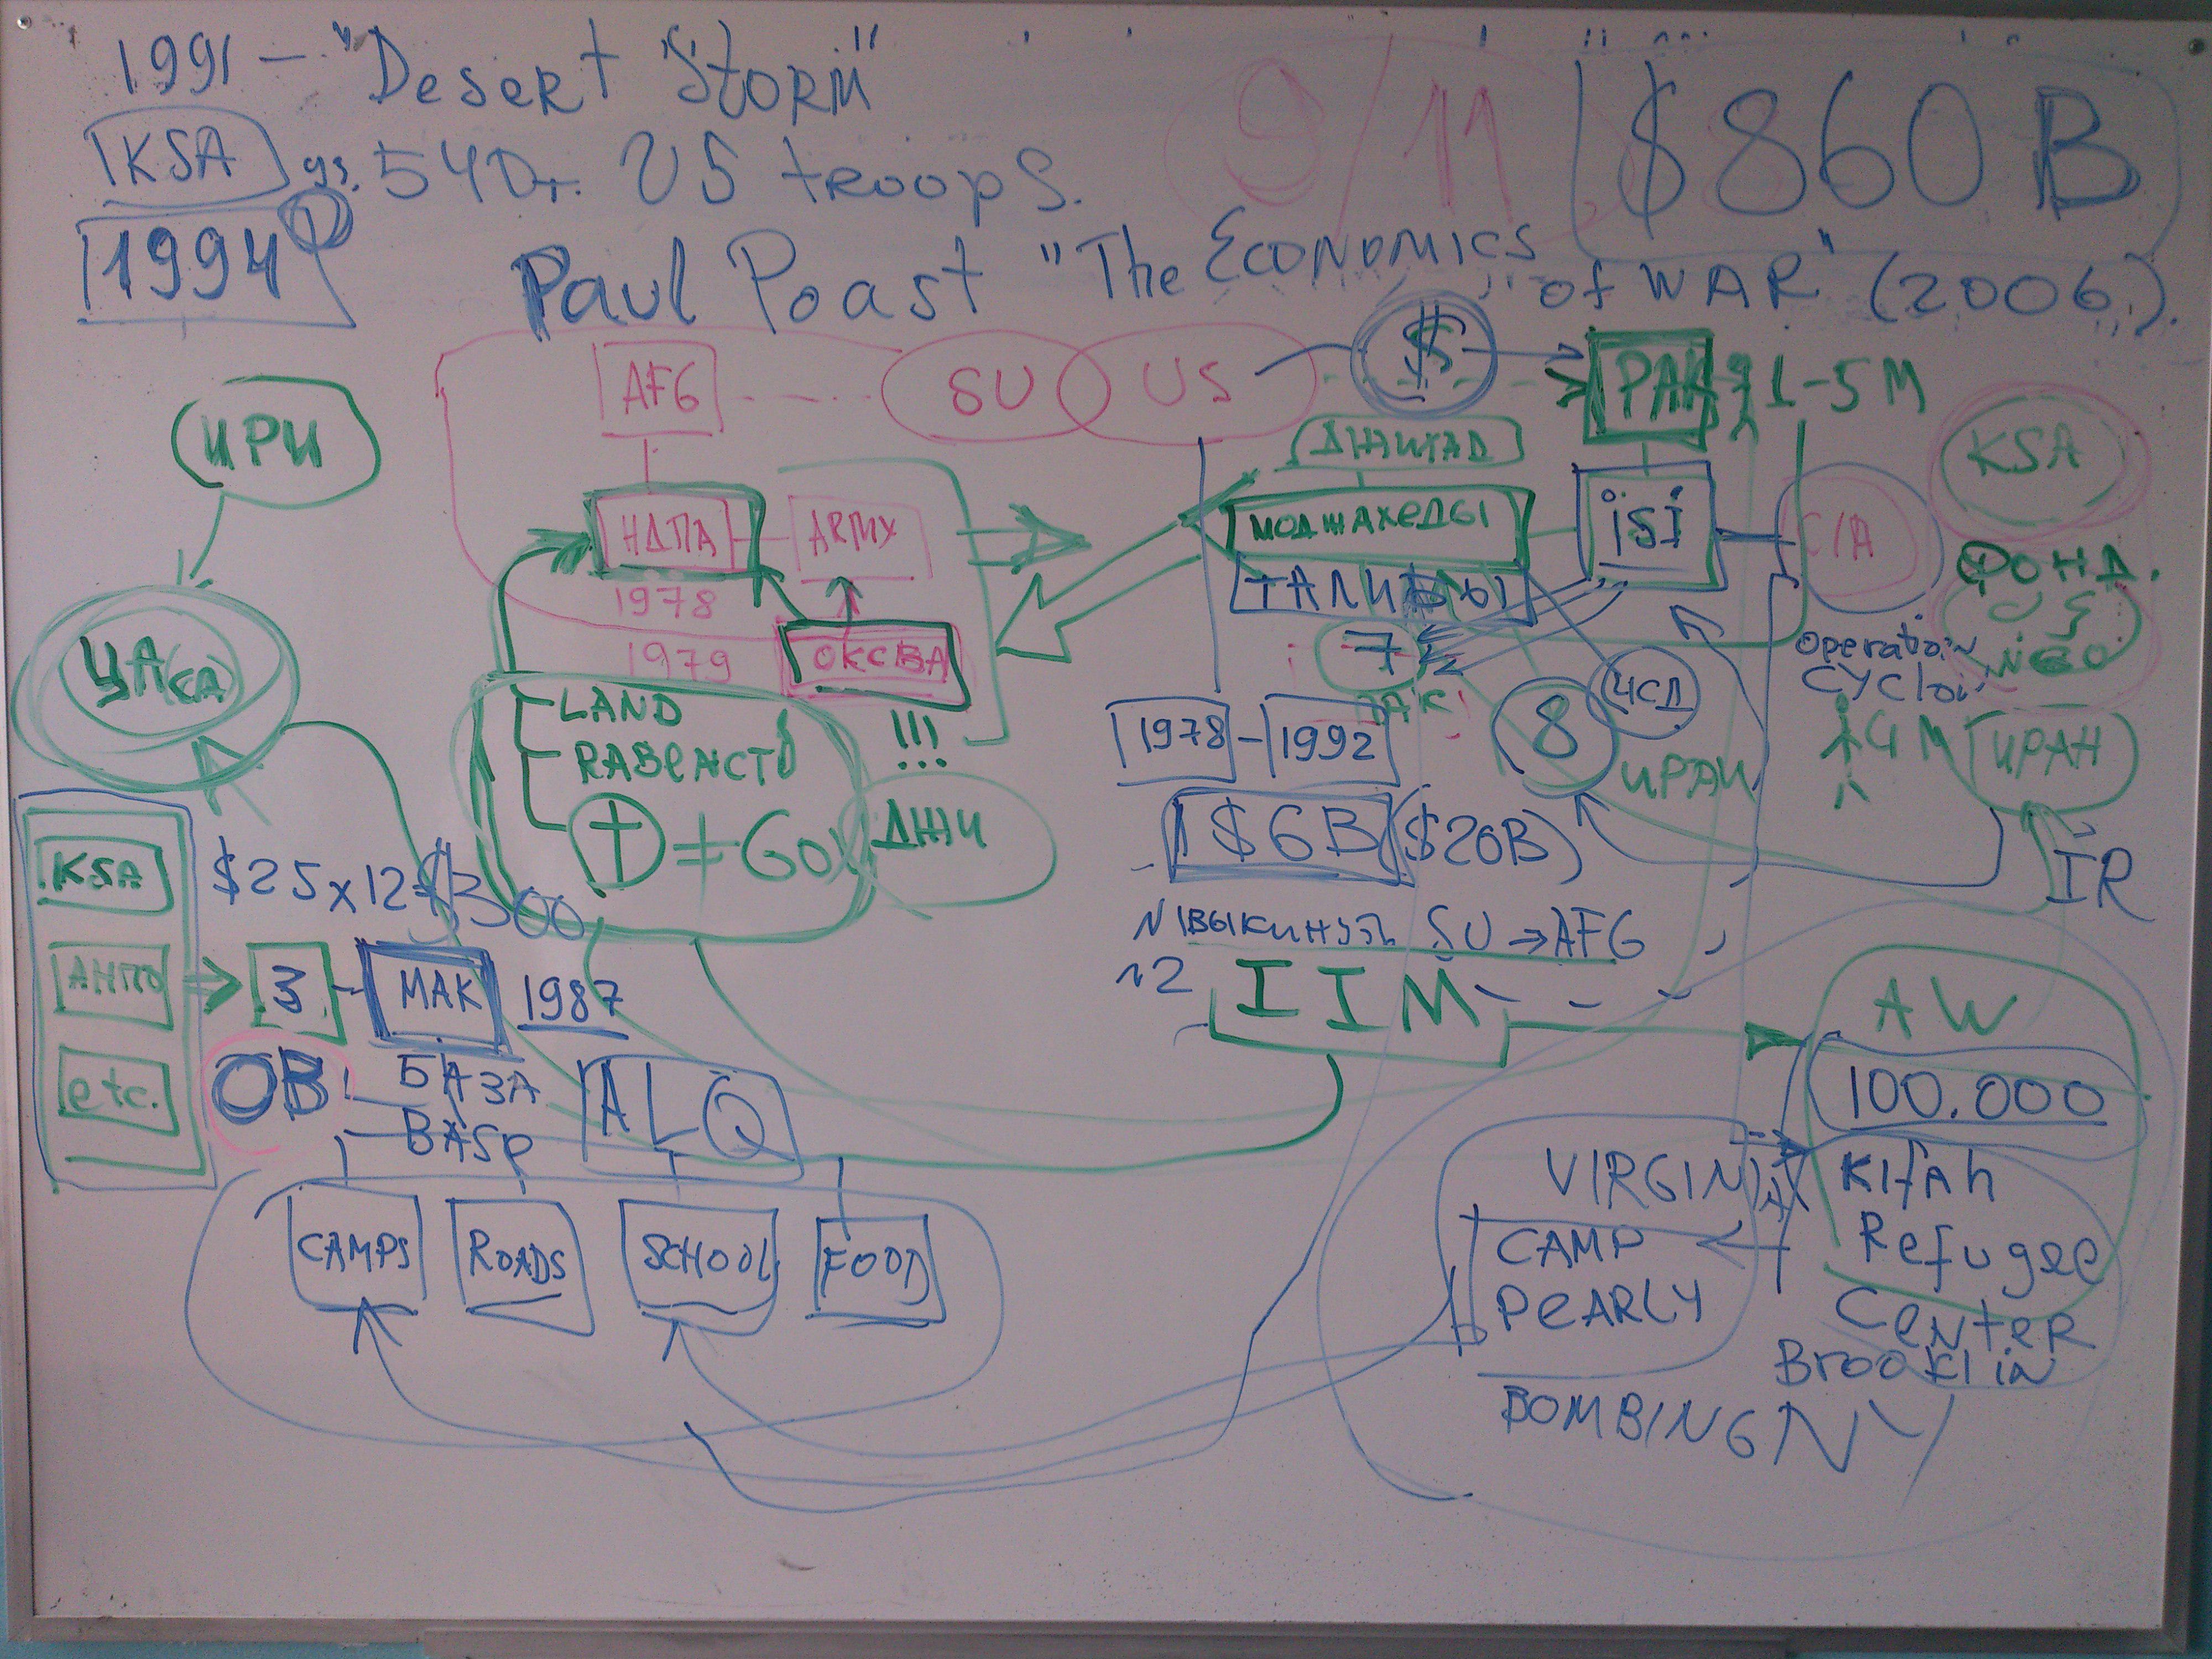 1991 - "Desert Storm"
9/11
$860 B
KSA
540т. US troops.
1994
Paul Poast "The Economics
of WAR" (2006)
AFG
SU
US
$
PAK
1-5M
ИРИ
ДЖИХАД
KSA
НДПА
ARMY
МОДЖАХЕДЫ
iSI
CIA
ФОНД.
1978
ТАЛИБЫ
ЦА(СА)
1979
ОКСВА
7
Operation
NGO
Cyclon
ПАК
LAND
!!!
1978 - 1992
8
ИРАН
4 M
ИРАН
РАВЕНСТВ
ДЖИ
$6B
($20B)
IR
KSA
$25 x 12 $300
N1 ВЫКИНУТЬ SU → AFG
N2
IIM
AW
3
МАК
1987
100.000
OB
БАЗА
ALQ
etc.
BASE
VIRGINIA
Kifah
CAMPS
ROADS
SCHOOL
FOOD
CAMP
Refugee
PEARLY
Center
Brooklin
BOMBING NY